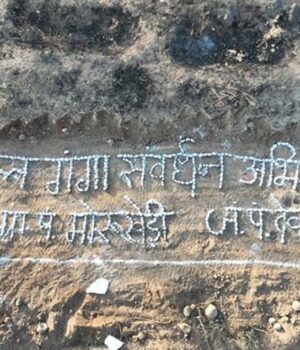 ल गंगा संवर्धन अभि
पं. मोरूखेड़ी ज.पं.